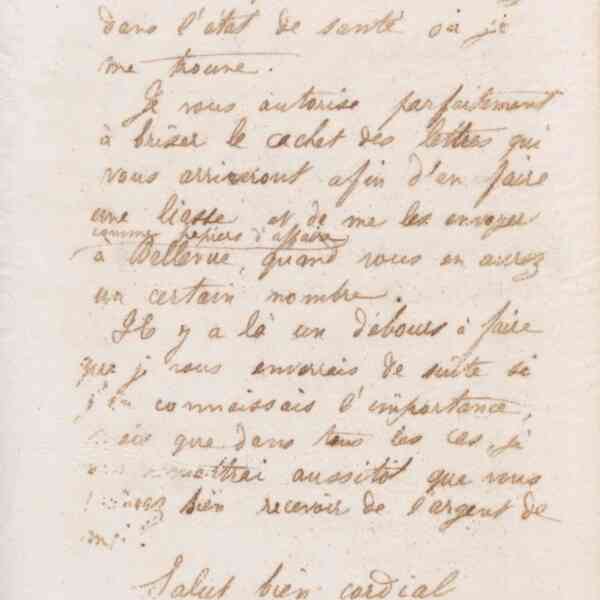 dans l'état de santé où je
me trouve.
Je vous autorise parfaitement
à briser le cachet des lettres qui
vous arriveront afin d'en faire
une liasse et de me les envoyer
comme papiers d'affaire
à Bellevue, quand vous en aurez
un certain nombre.
Il y a là un débours à faire
que je vous enverrais de suite si
j'en connaissais l'importance,
que dans tous les cas, je
aussitôt que vous
bien recevoir de l'argent de
Salut bien cordial